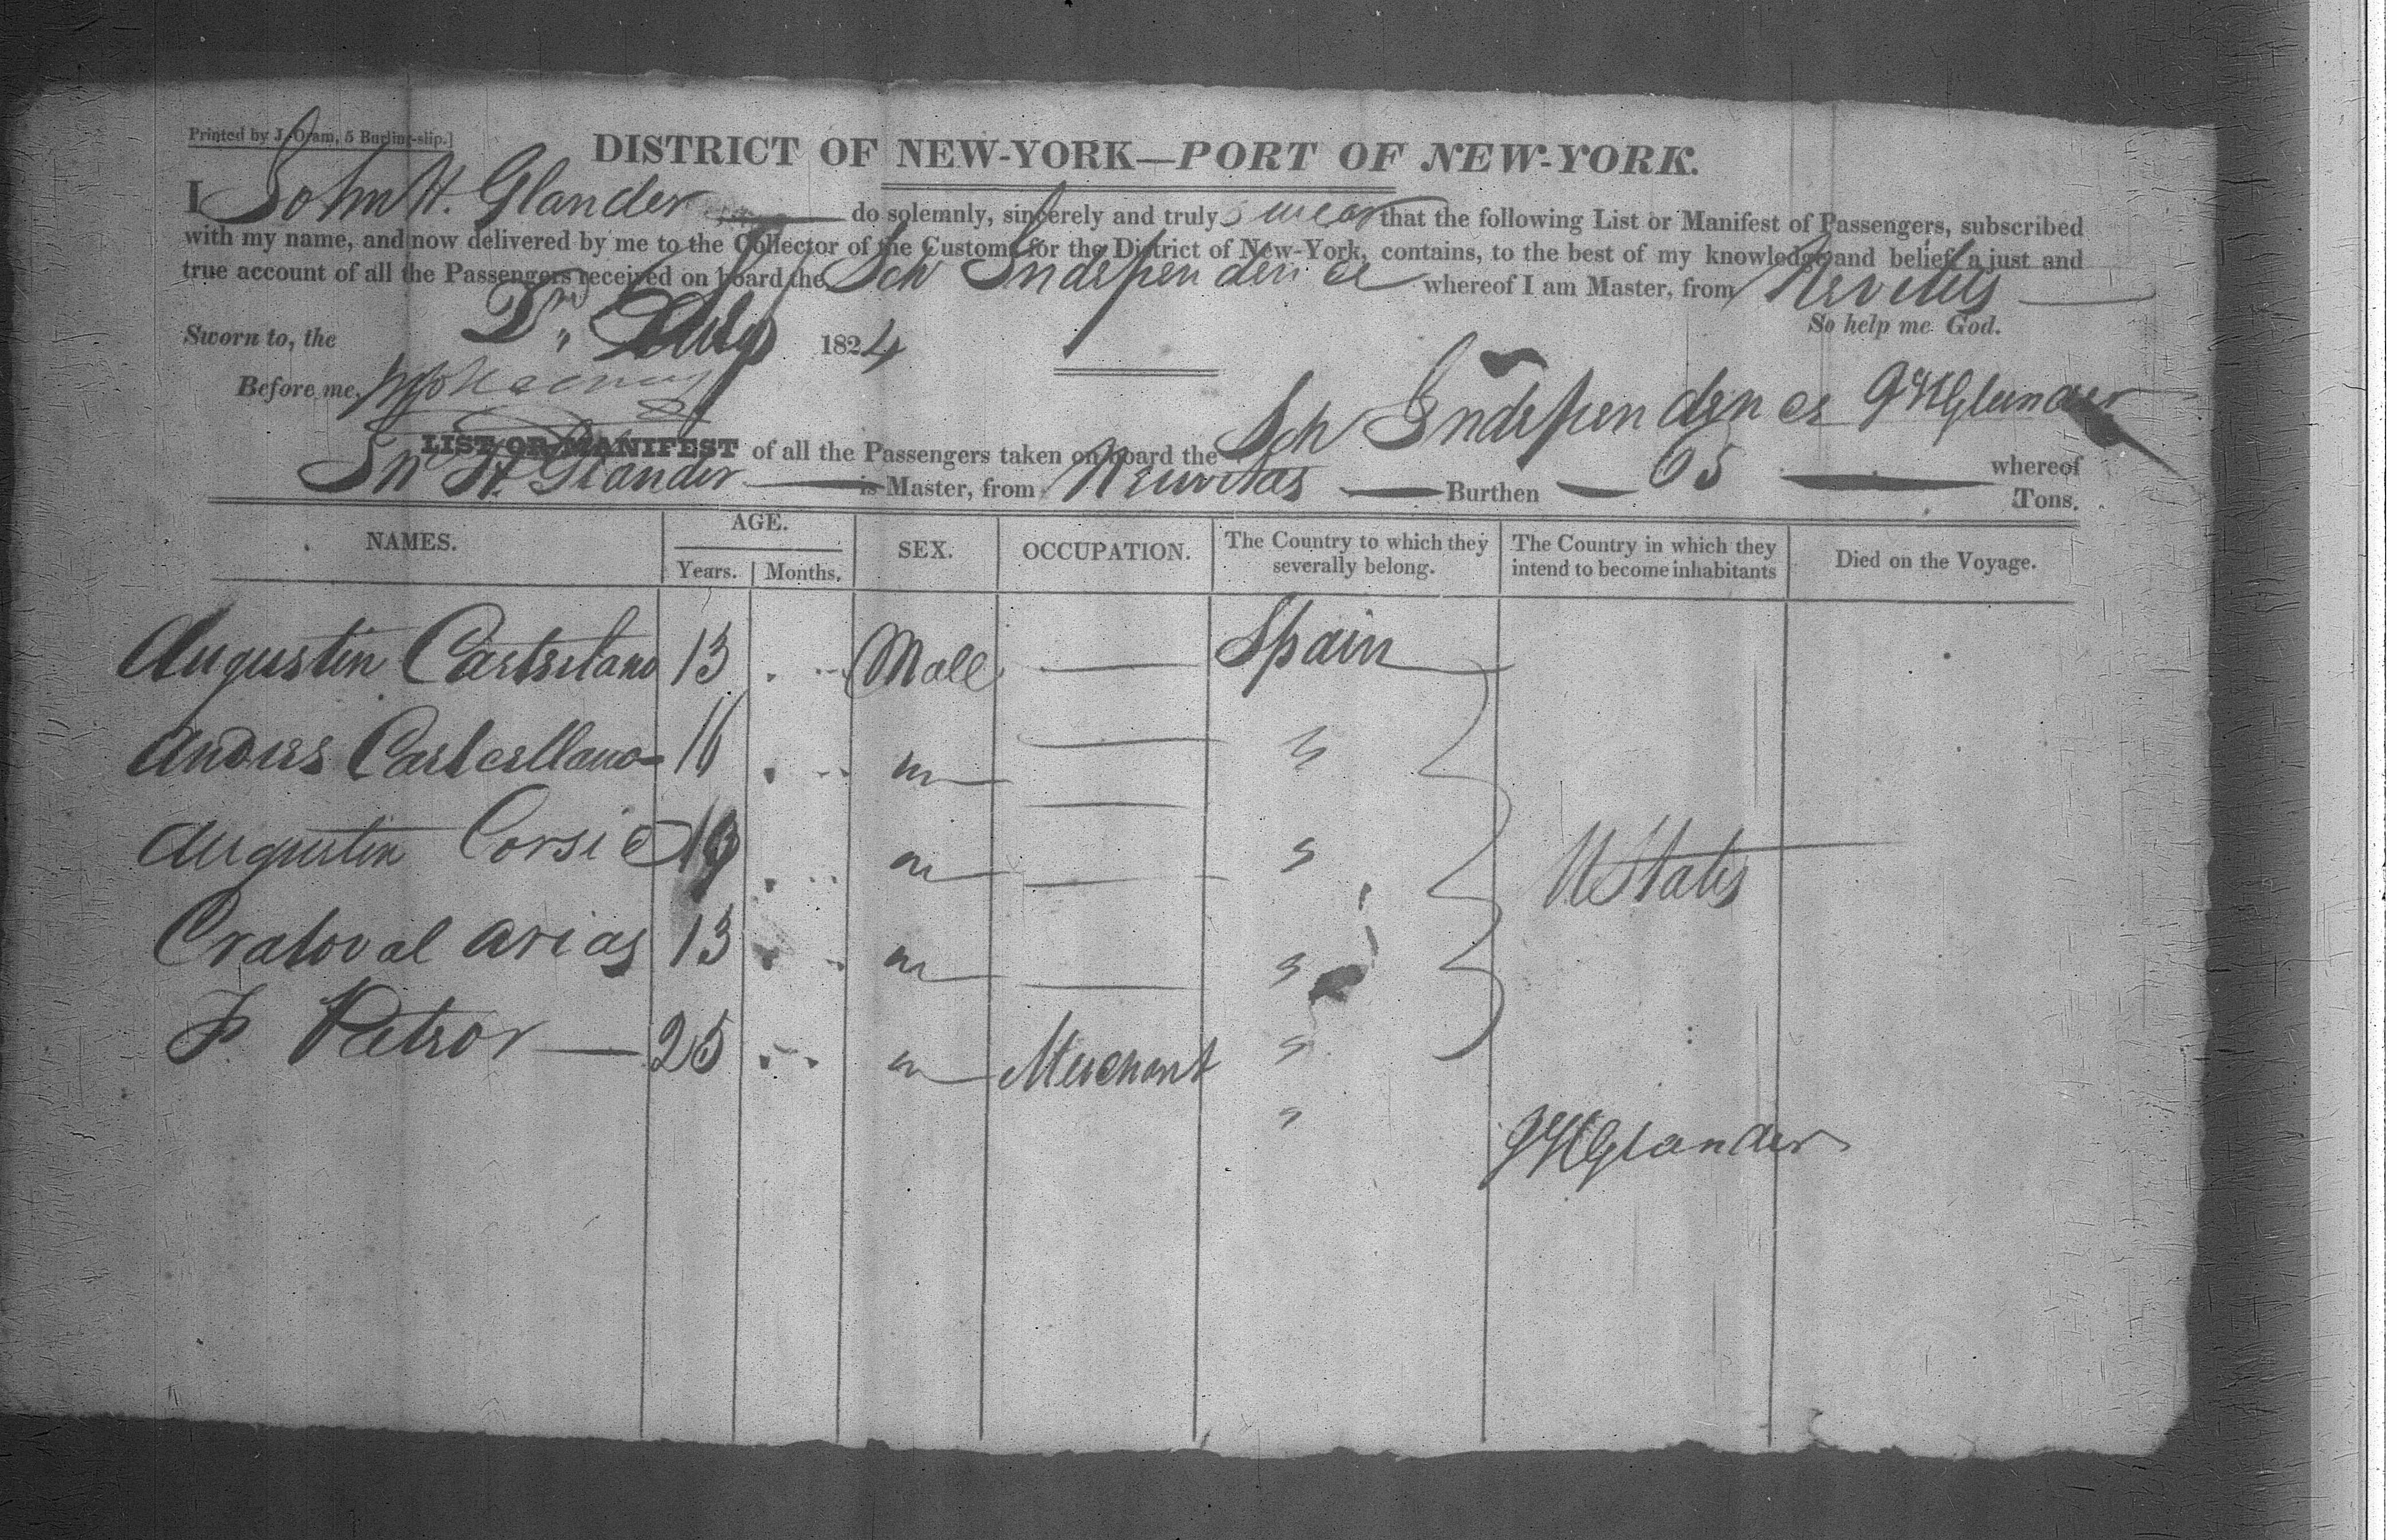 Printed by J. Oram, 5 Burling-slip.]
DISTRICT OF NEW-YORK—PORT OF NEW-YORK.
I John H. Glander do solemnly, sincerely and truly swear that the following List or Manifest of Passengers, subscribed
with my name, and now delivered by me to the Collector of the Customs for the District of New-York, contains, to the best of my knowledge and belief, a just and
true account of all the Passengers received on board the Sch Independence whereof I am Master, from
So help me God.
Sworn to, the July 1824
Before me,
LIST OR MANIFEST of all the Passengers taken on board the Sch Independence JHGlander whereof
Jn° H. Glander is Master, from Neuvitas Burthen 65 Tons.
NAMES. AGE. Years. Months. SEX. OCCUPATION. The Country to which they severally belong. The Country in which they intend to become inhabitants Died on the Voyage.
Augustin 13 Male — Spain
Andres Castcellano 16 m — "
Augustin Corsie 19 m — "
Cratoval Arias 13 m — " U States
25 m Merchant "
"
JHGlander